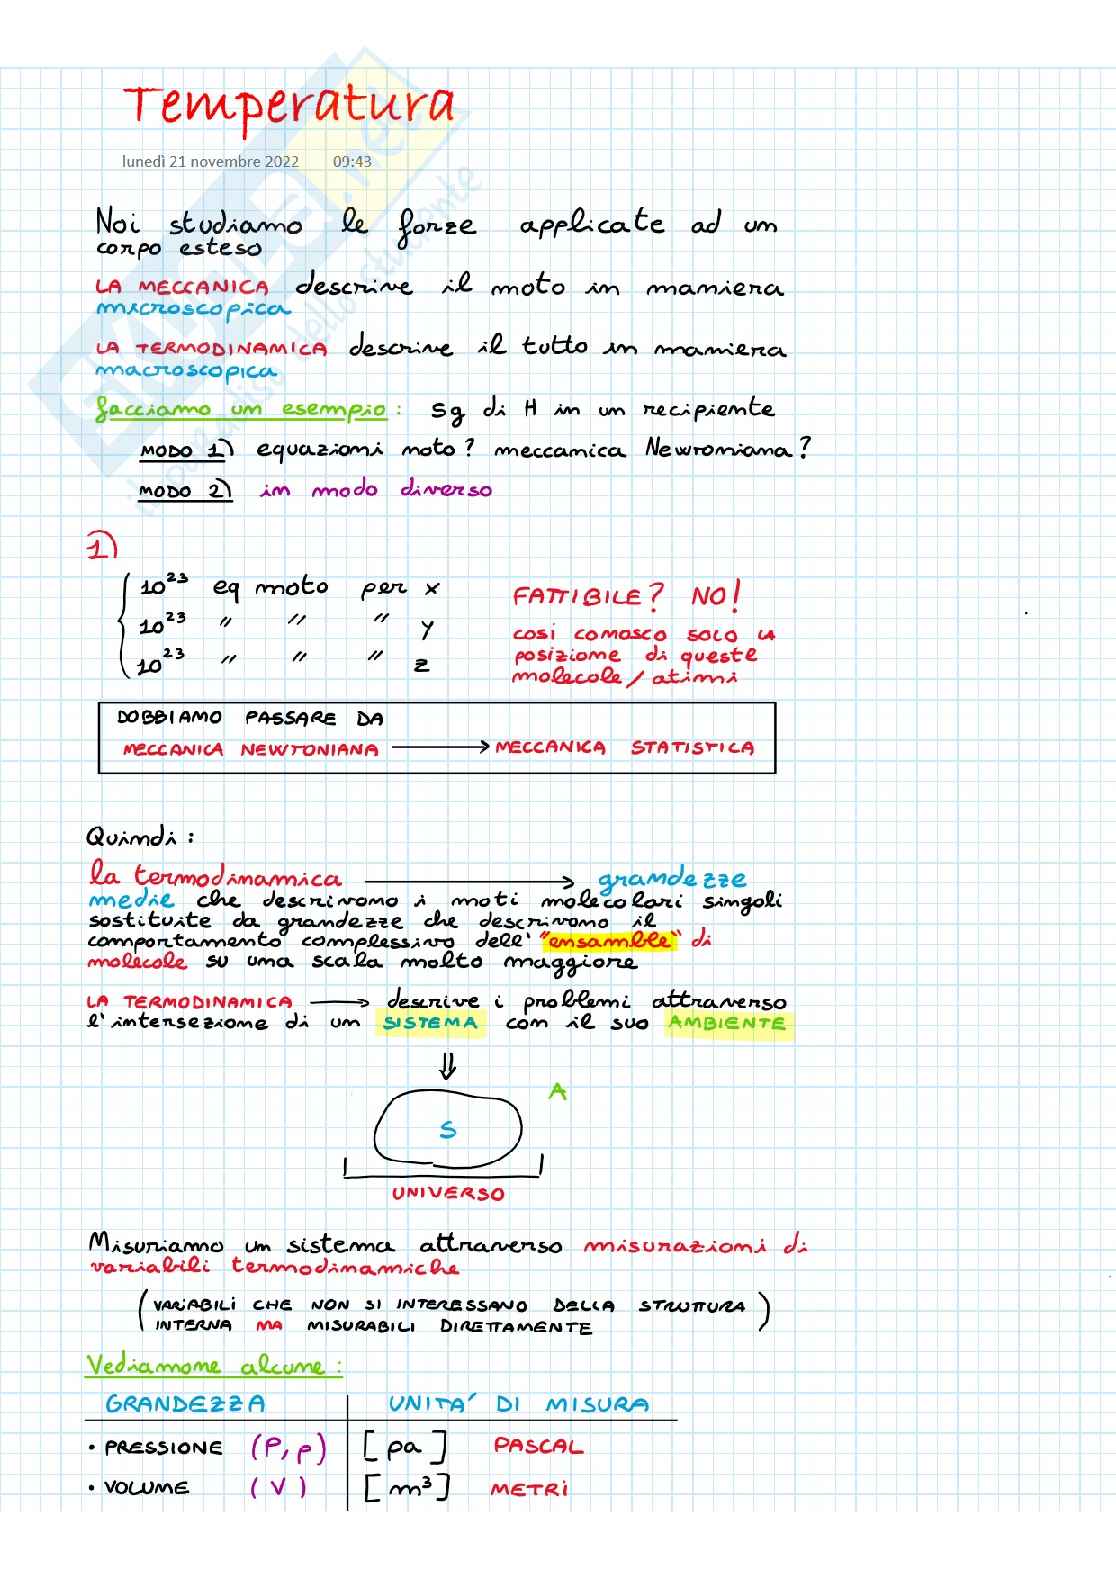 Temperatura
lunedì 21 novembre 2022 09:43
Noi studiamo le forze applicate ad un
corpo esteso
LA MECCANICA descrive il moto in maniera
microscopica
LA TERMODINAMICA descrive il tutto in maniera
macroscopica
facciamo un esempio: 5g di H in un recipiente
MODO 1) equazioni moto? meccanica Newtoniana?
MODO 2) in modo diverso
1)
10²³ eq moto per x
10²³ " " " y
10²³ " " " z
FATTIBILE? NO!
così conosco solo la
posizione di queste
molecole/atimi
DOBBIAMO PASSARE DA
MECCANICA NEWTONIANA → MECCANICA STATISTICA
Quindi:
la termodinamica → grandezze
medie che descrivono i moti molecolari singoli
sostituite da grandezze che descrivono il
comportamento complessivo dell' "ensamble" di
molecole su una scala molto maggiore
LA TERMODINAMICA → descrive i problemi attraverso
l'intersezione di un SISTEMA con il suo AMBIENTE
⇓
A
S
UNIVERSO
Misuriamo un sistema attraverso misurazioni di
variabili termodinamiche
(VARIABILI CHE NON SI INTERESSANO DELLA STRUTTURA
INTERNA MA MISURABILI DIRETTAMENTE)
Vediamone alcune:
GRANDEZZA UNITA' DI MISURA
• PRESSIONE (P, p) [pa] PASCAL
• VOLUME (V) [m³] METRI